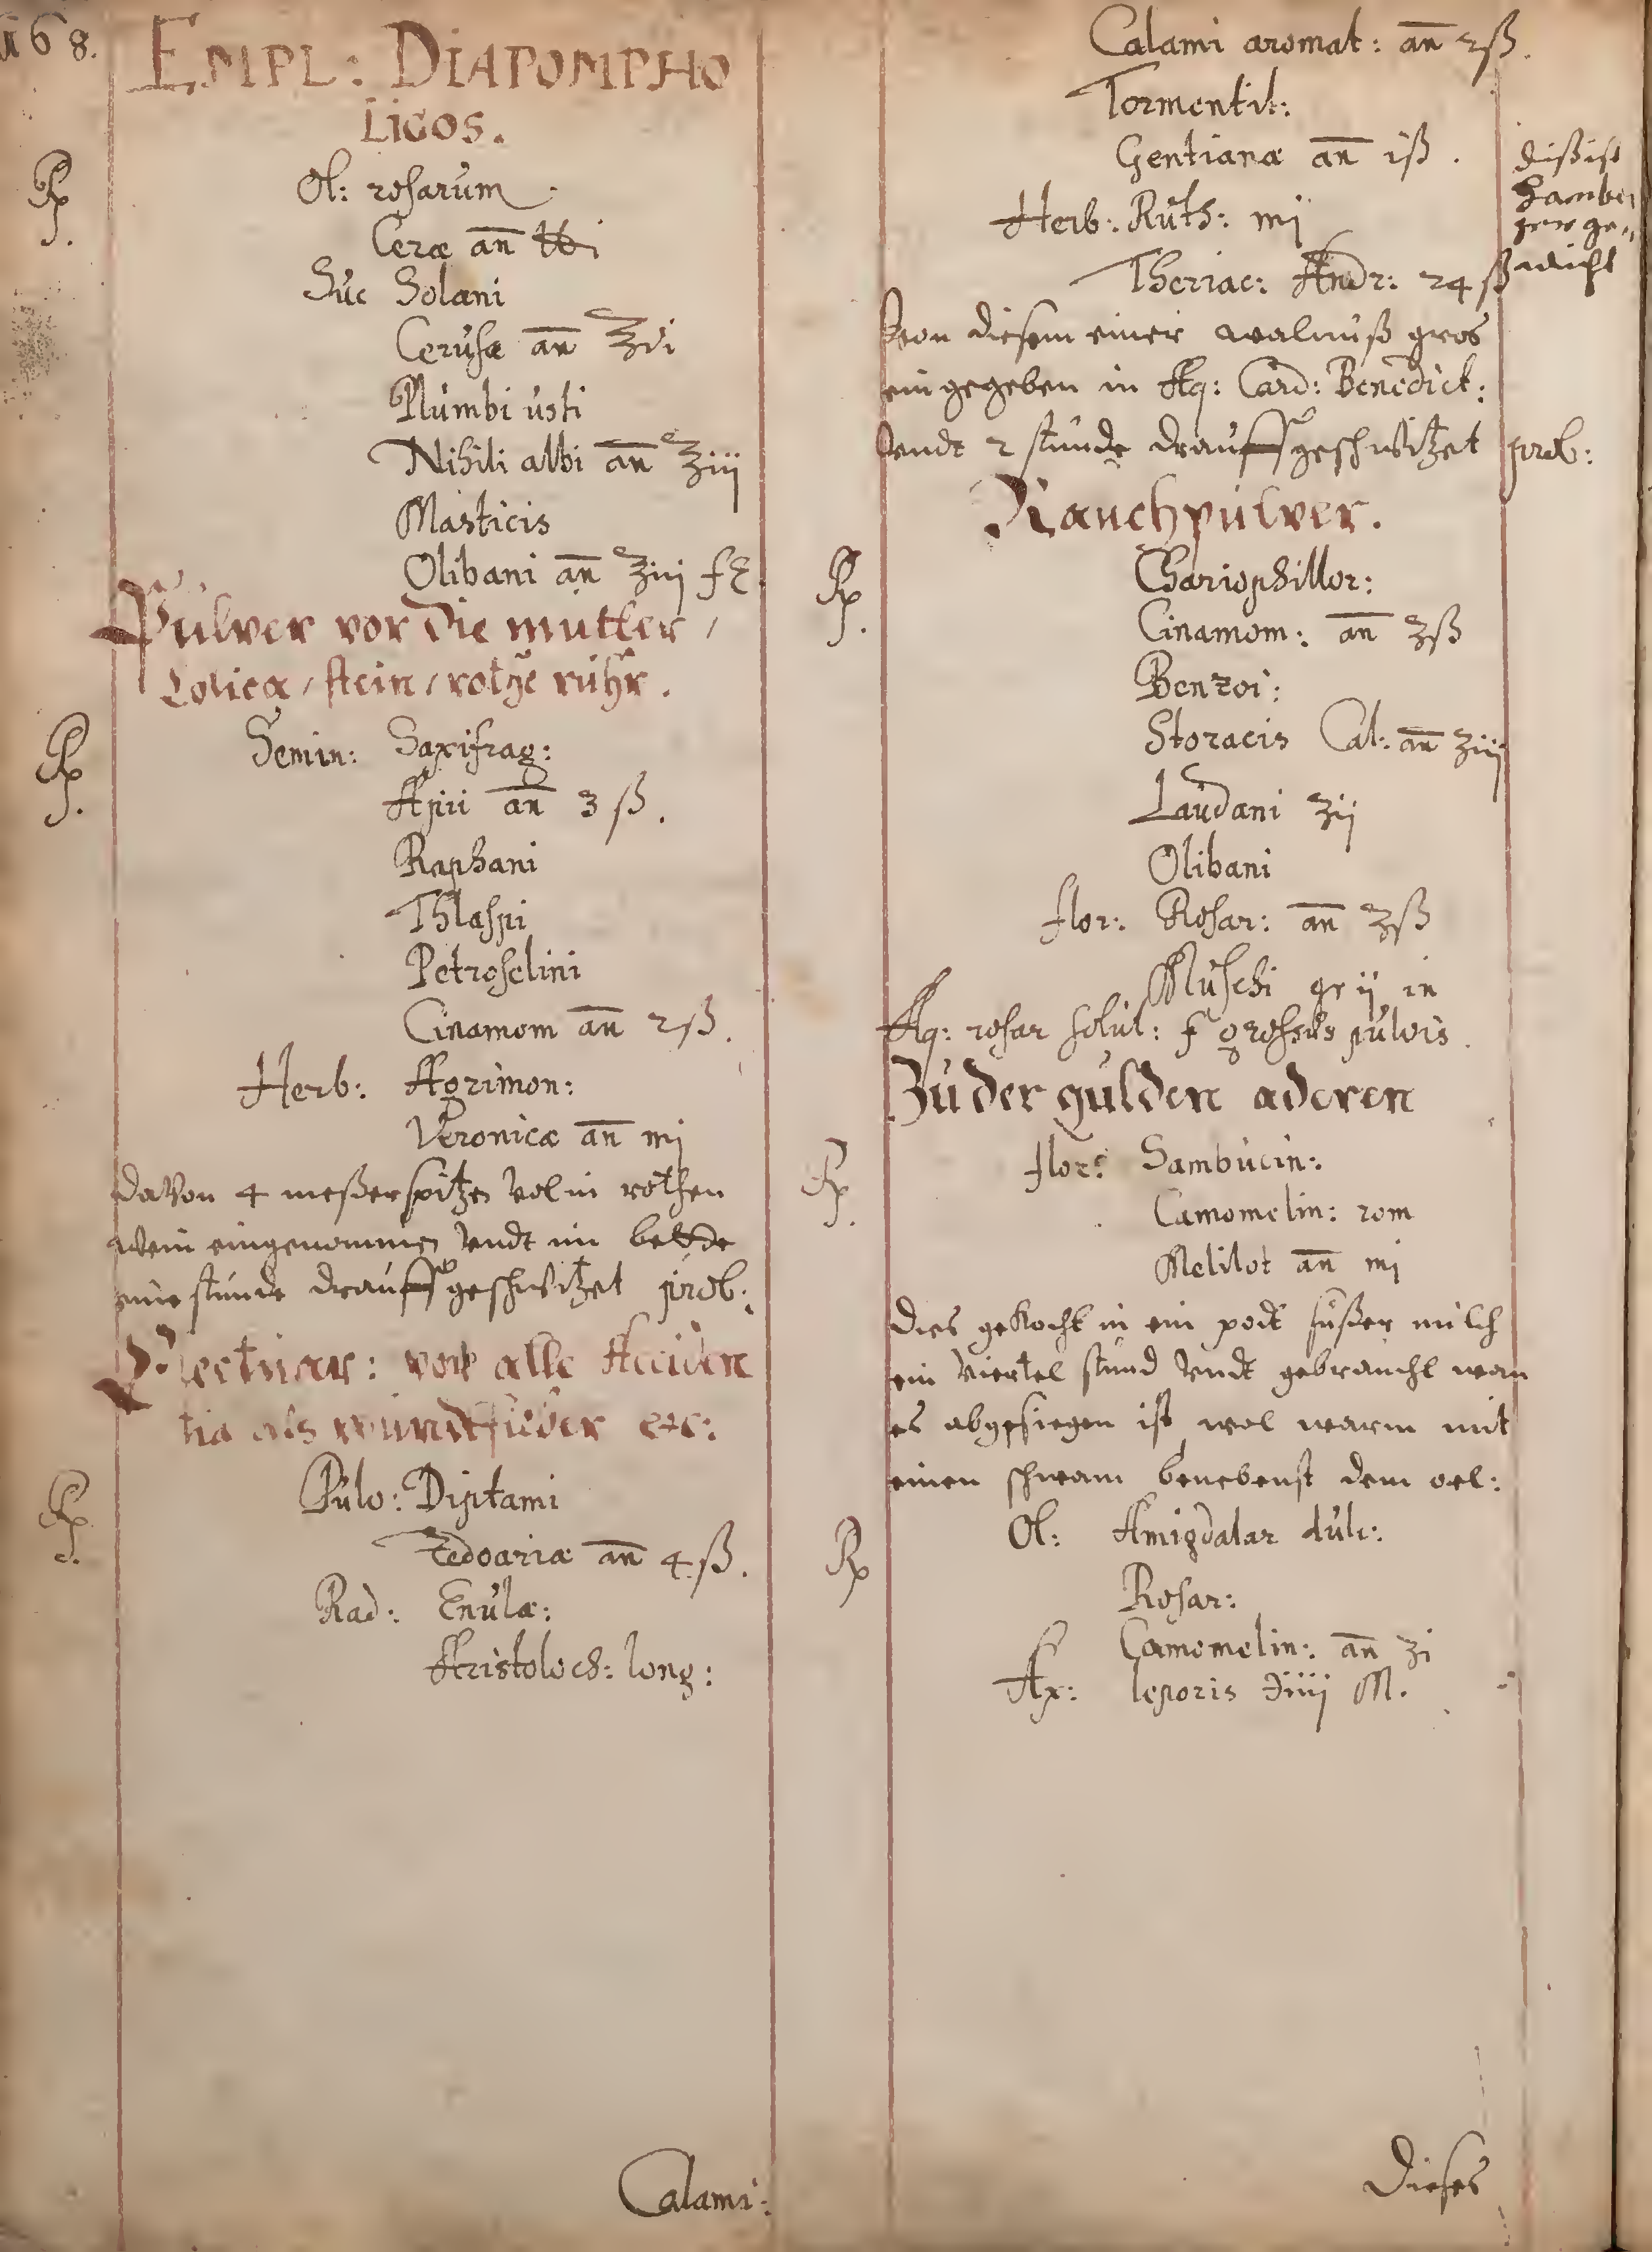 168.
EMPL: DIAPOMPHO
LIGOS.
Rp.
Ol: rosarum.
Ceræ añ ℔i
Suc Solani
Cerusæ añ ℥vi
Plumbi usti
Nihili albi añ ℥iij
Masticis
Olibani añ ℥iij f E
Pulver vor die mutter /
Colica / stein / rothe ruhr.
Rp.
Semin: Saxifrag:
Apii añ 3 ß.
Raphani
Thlaspi
Petroselini
Cinamom añ 2 ß.
Herb: Agrimon:
Veronicæ añ mj
davon 4 meßerspitzen vol in rothen
wein eingenommen undt im bedde
eine stunde drauff geschwitzet prob:
Electuar: vor alle Acciden
tia als wundtfieber etc:
Rp.
Pulv: Diptami
Zedoariæ añ 4 ß.
Rad: Enulæ:
Aristoloch: long:
Calami:
Calami aromat: añ 2ß.
Tormentil:
Gentianæ añ 1ß.
Herb: Ruth: mj
Theriac: Andr: 24 ß
dißist
Hambur
ger ge„
wicht
Von diesem einer walnuß gros
eingegeben in Aq: Card: Benedict:
undt 2 stunde drauff geschwitzet prob:
Rauchpulver.
Rp.
Chariophillor:
Cinamom: añ ℥ß
Benzoi:
Storacis Cal: añ ʒiij
Laudani ʒij
Olibani
flor: Rosar: añ ℥ß
Muschi gr ij in
Aq: rosar solut: f grossus pulvis.
Zu der gulden aderen
Rp.
flor: Sambucin:
Camomelin: rom
Melilot añ mj
Dies gekocht in ein pott süßer milch
ein viertel stund undt gebraucht wan
es abgesiegen ist wol warm mit
einen schwam benebenst dem oel:
Rp
Ol: Amigdalar dulc:
Rosar:
Camomelin: añ ʒi
Ax: leporis ʒiiij M.
Dieses